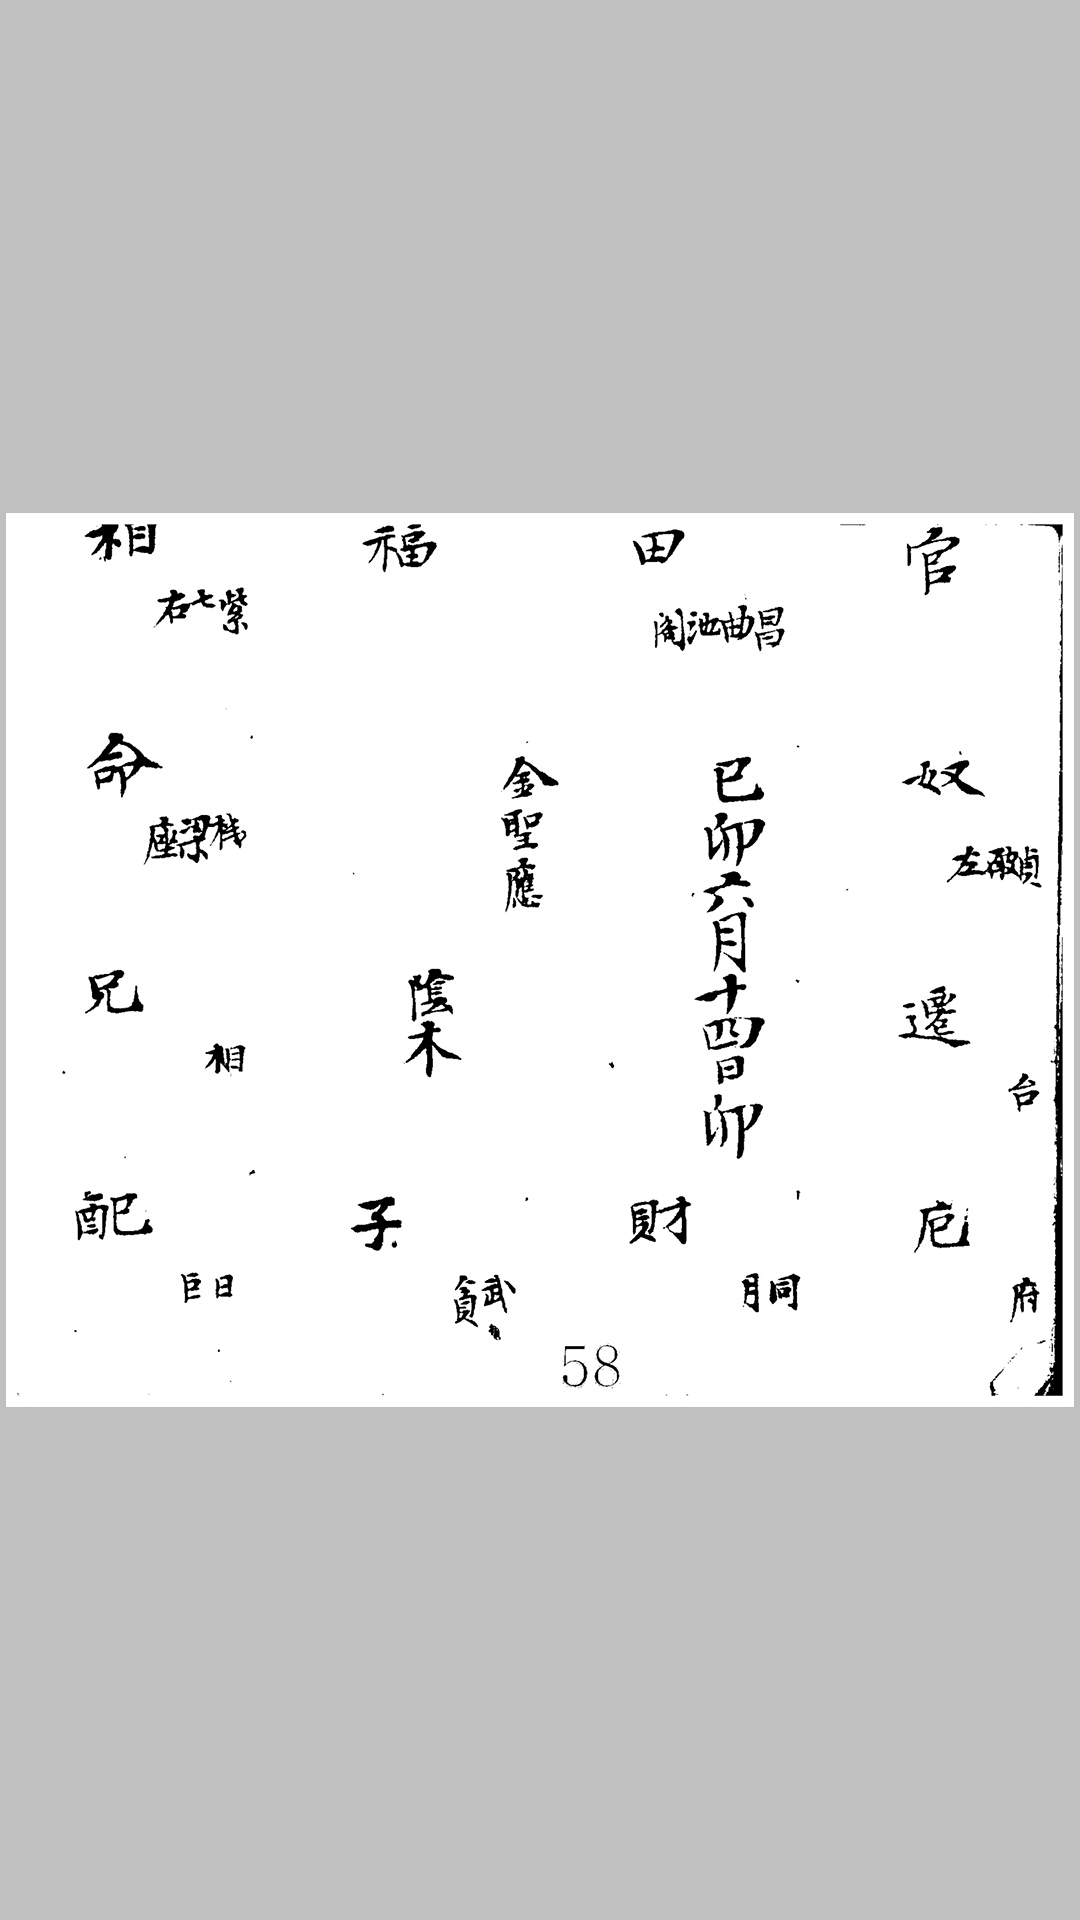 相 福 田 官
右七紫
閣池曲昌
命
座梁機
金聖應
己卯六月十四日卯
奴
左破貞
兄
相
陰木
遷
台
配 子 財 庀
巨日
貪武
月同
府
58